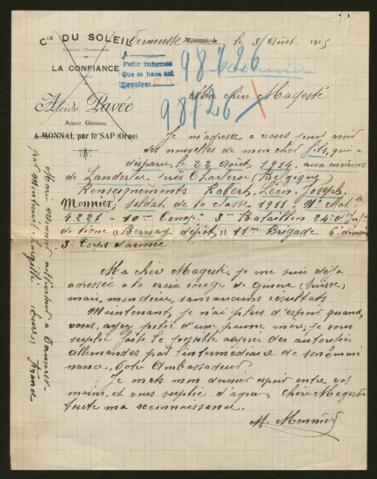 Cie DU SOLEIL
LA CONFIANCE
Alcide Pavée
AGENT GÉNÉRAL
A MONNAI, par le SAP (Orne)
le 8 Août 1915
A
Pedir informes
Que se haga así
Devolver
98726
98726
Ma chère Majesté
Je m'adresse a vous pour avoir
des nouvelles de mon cher fils, qui a
disparu, le 22 Août 1914, aux environs
de près Charleroi (Belgique)
Renseignements Robert, Léon, Joseph,
Monnier, soldat de la classe 1911 Nº Mle
4221 - 10e Compie 3e Bataillon 24e d'Infie
de ligne Bernay dépôt, 11e Brigade 6e division
3e Corps d'armée
Ma chère Majesté, je me suis déjà
adressée a la croix rouge de Genève (Suisse)
mais, mon dieu, sans aucuns résultats
Maintenant, je n'ai plus d'espoir quand
vous, ayez pitié d'une pauvre mère, je vous
supplie faite le possible auprès des autorités
allemandes par l'intermédiaire de
Votre Ambassadeur
Je mets mon dernier espoir entre vos
mains, et vous supplie d'agréer, Chère Majesté
toute ma reconnaissance.
M. Monnier
Marie Monnier
par Montreuil-l'Argillé (Eure) France